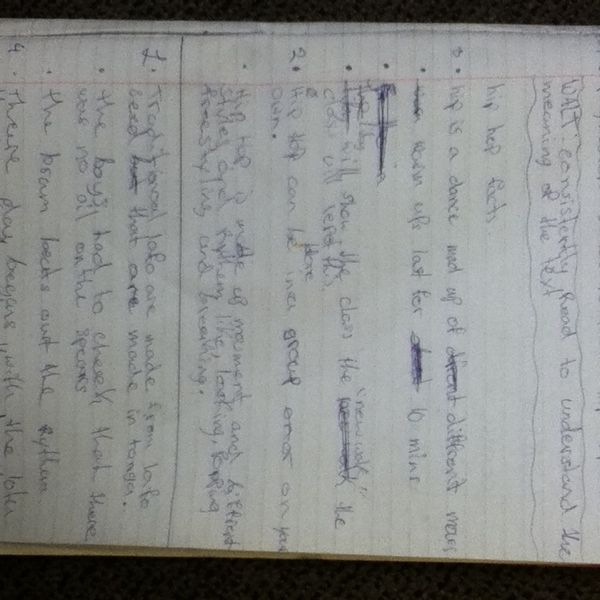 WALT consistently Read to understand the
meaning of the text
hip hop facts
3 • hip is a dance mad up of different moves
• warm up last for 10 mins
•
• will show the class the "new walk" the
class will learn this.
2 • Hip Hop can be done in a group and or on your
own.
• Hip Hop is made up movment and different
styles and rythem like, locking, Popping
freestyling and breathing.
1 • Traditional lafo are made from lafo
seed that are made in tonga.
• the boys had to check that there
was no oil on the spears
• the beam beats out the rythem
4 • Theire day begens with the